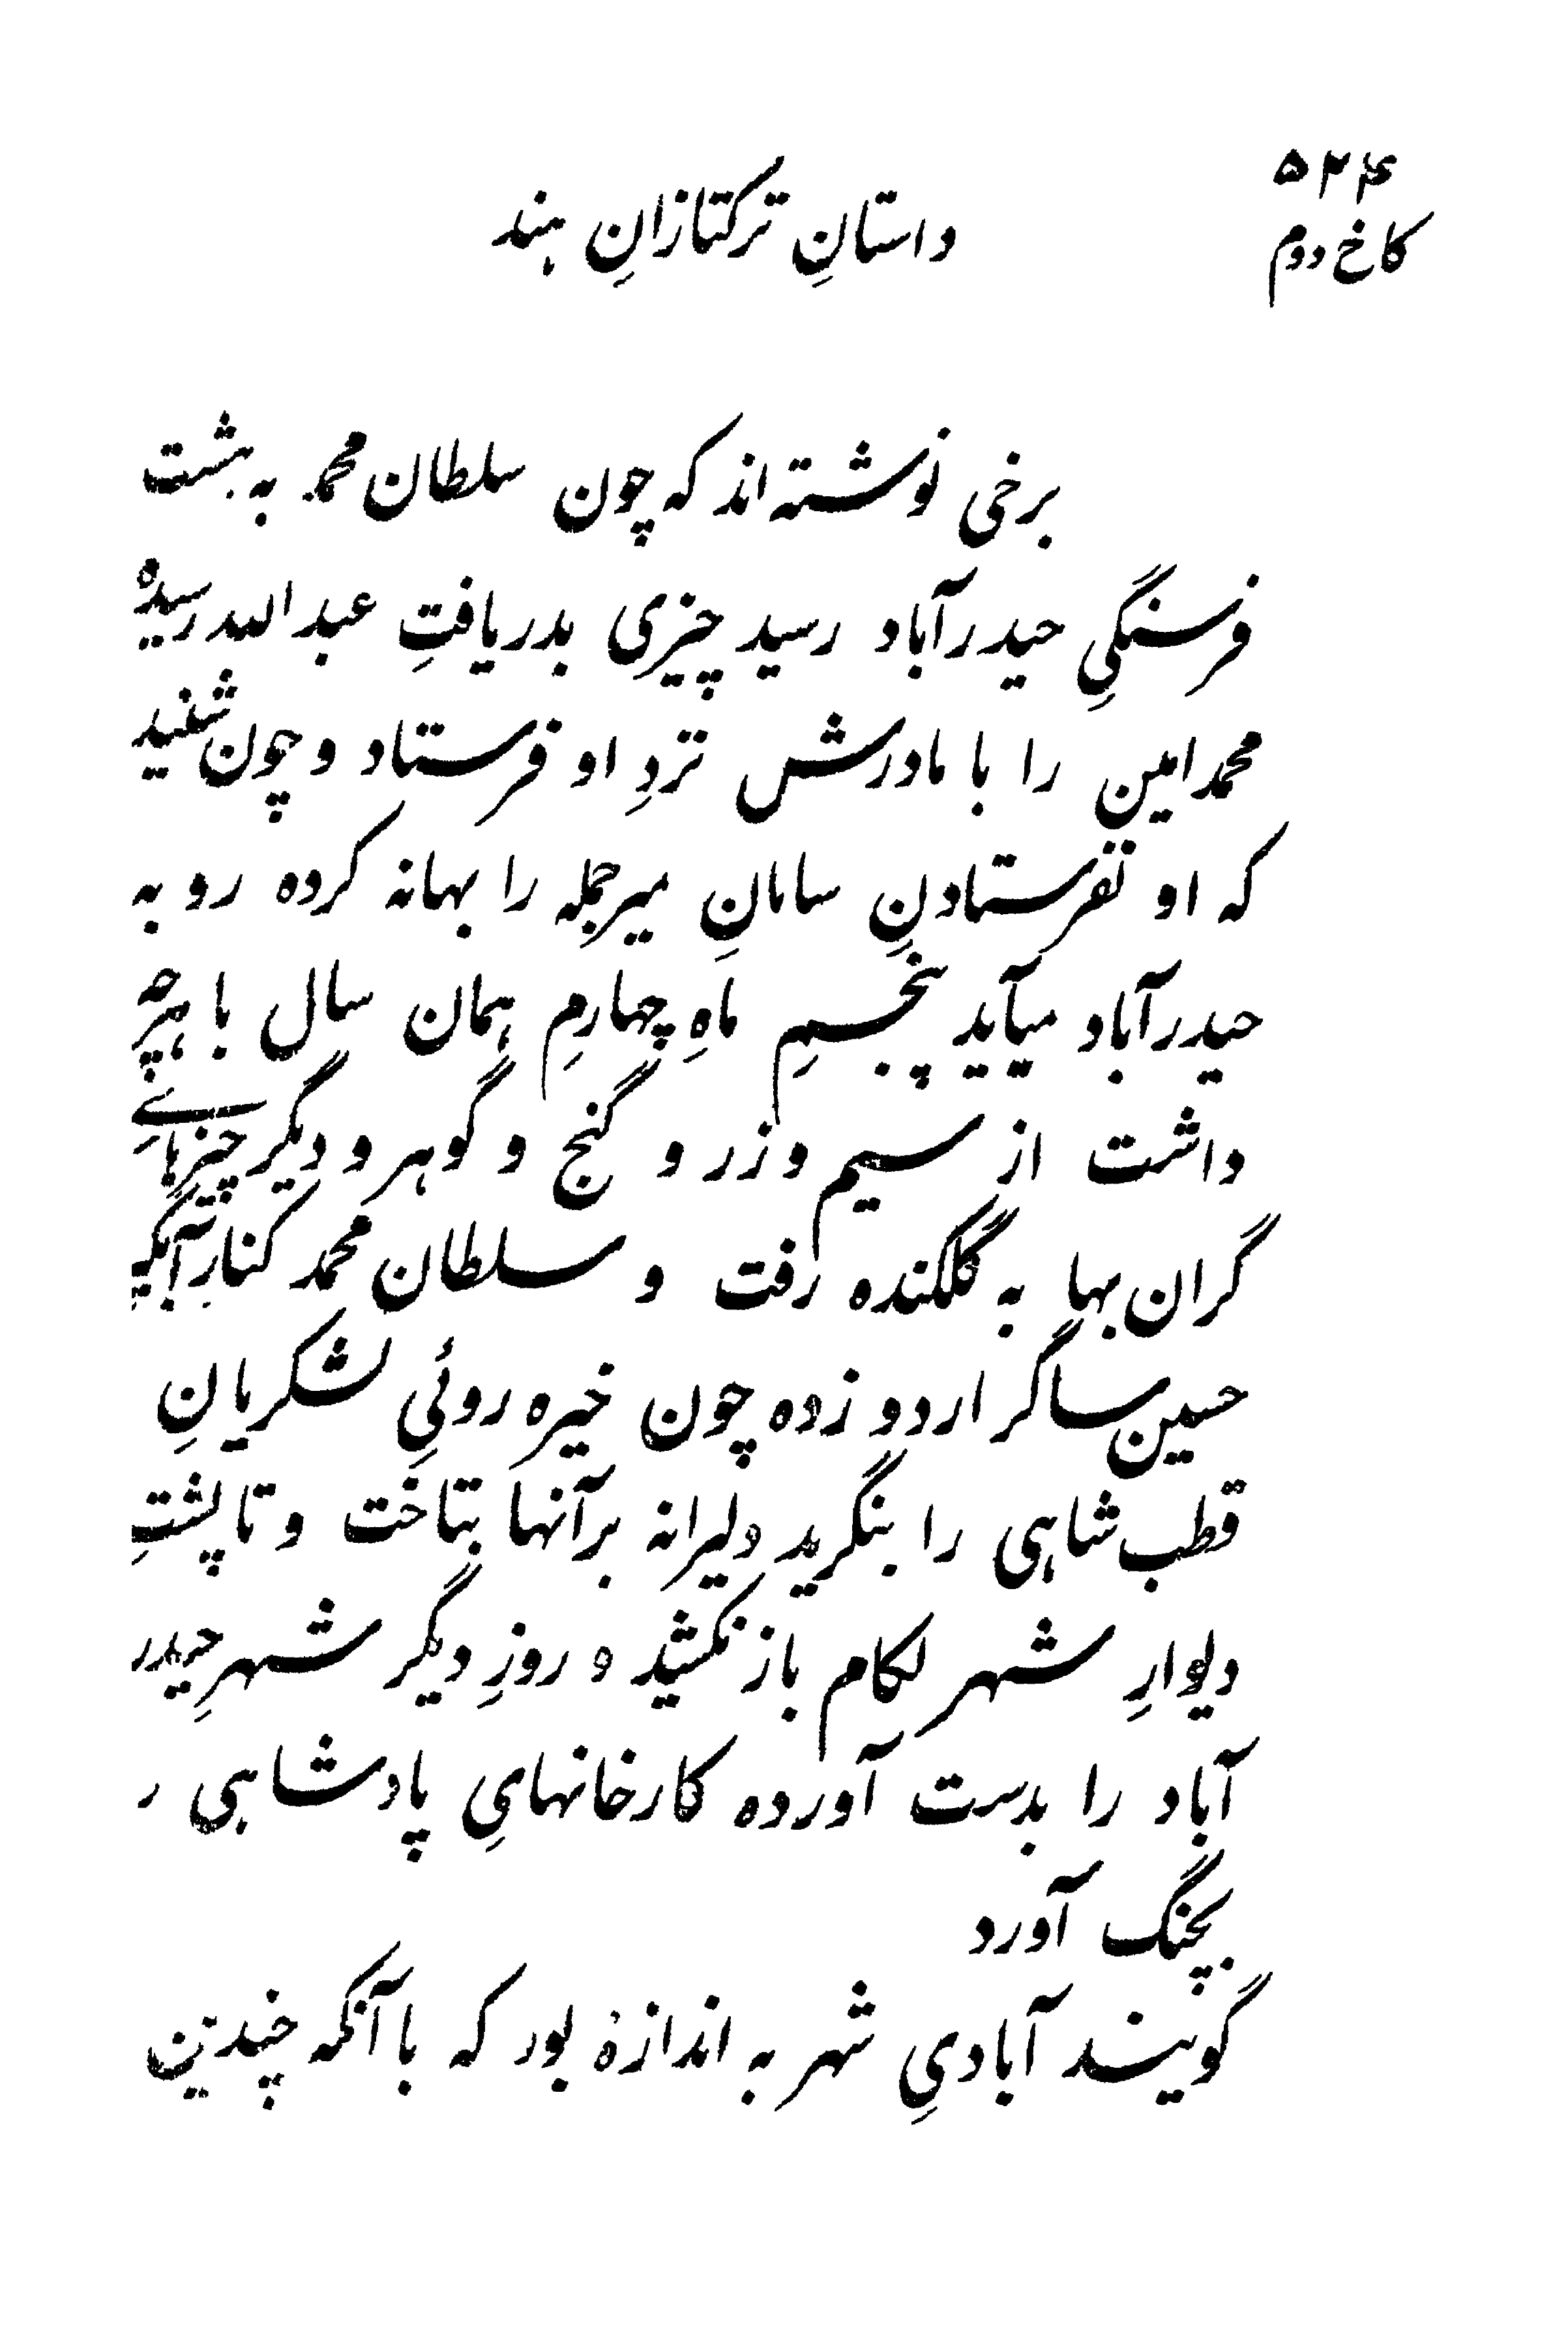 ۵۲۴
کاخ دوم
داستانِ ترکتازانِ هند
برخی نوشته‌اند که چون سلطان محمد به هشت
فرسنگیِ حیدرآباد رسید چیزی بدریافتِ عبدالله رسیده
محمد امین را با مادرش نزدِ او فرستاد و چون شنید
که او نفرستادنِ سامانِ میرجمله را بهانه کرده رو به
حیدرآباد میآید پنجمِ ماهِ چهارمِ همان سال با هرچه
داشت از سیم و زر و گنج و گوهر و دیگر چیزهائے
گران بها به گلکنده رفت و سلطان محمد کنارِ آبگیر
حسین ساگر اردو زده چون خیره روئیِ لشکریانِ
قطب شاهی را بنگرید دلیرانه برآنها بتاخت و تا پشتِ
دیوارِ شهر لکام باز نکشید و روزِ دیگر شهرِ حیدر
آباد را بدست آورده کارخانهایِ پادشاهی ر
بچنگ آورد
گویند آبادیِ شهر به اندازهٔ بود که با آنکه چندین